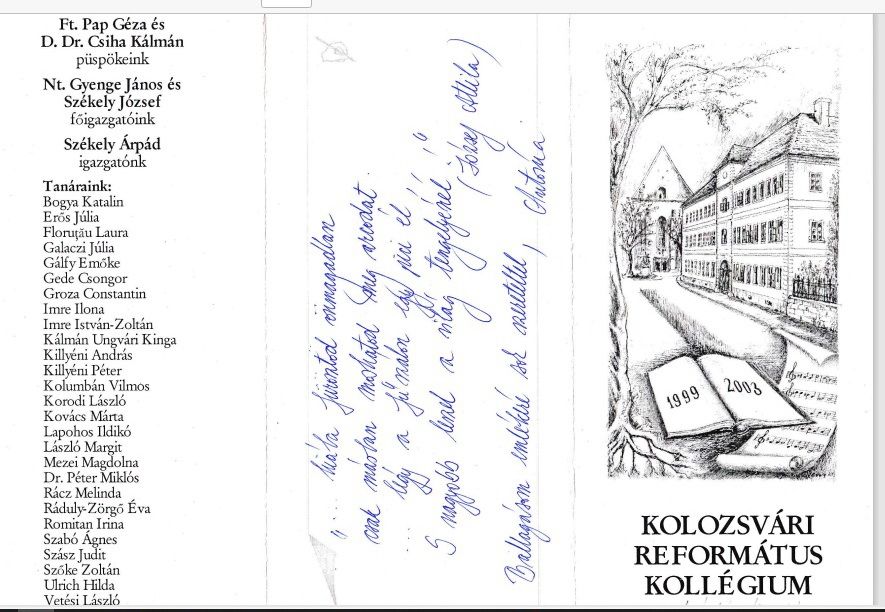 Ft. Pap Géza és
D. Dr. Csiha Kálmán
püspökeink
Nt. Gyenge János és
Székely József
főigazgatóink
Székely Árpád
igazgatónk
Tanáraink:
Bogya Katalin
Erős Júlia
Floruţău Laura
Galaczi Júlia
Gálfy Emőke
Gede Csongor
Groza Constantin
Imre Ilona
Imre István-Zoltán
Kálmán Ungvári Kinga
Killyéni András
Killyéni Péter
Kolumbán Vilmos
Korodi László
Kovács Márta
Lapohos Ildikó
László Margit
Mezei Magdolna
Dr. Péter Miklós
Rácz Melinda
Ráduly-Zörgő Éva
Romitan Irina
Szabó Ágnes
Szász Judit
Szőke Zoltán
Ulrich Hilda
Vetési László
"... hiába fürösztöd önmagadban
csak másban moshatod meg arcodat.
... légy a fűszálon egy pici él
S nagyobb leszel a világ tengelyénél!"
(József Attila)
Ballagásom emlékére sok szeretettel, Antónia
1999 2003
KOLOZSVÁRI
REFORMÁTUS
KOLLÉGIUM